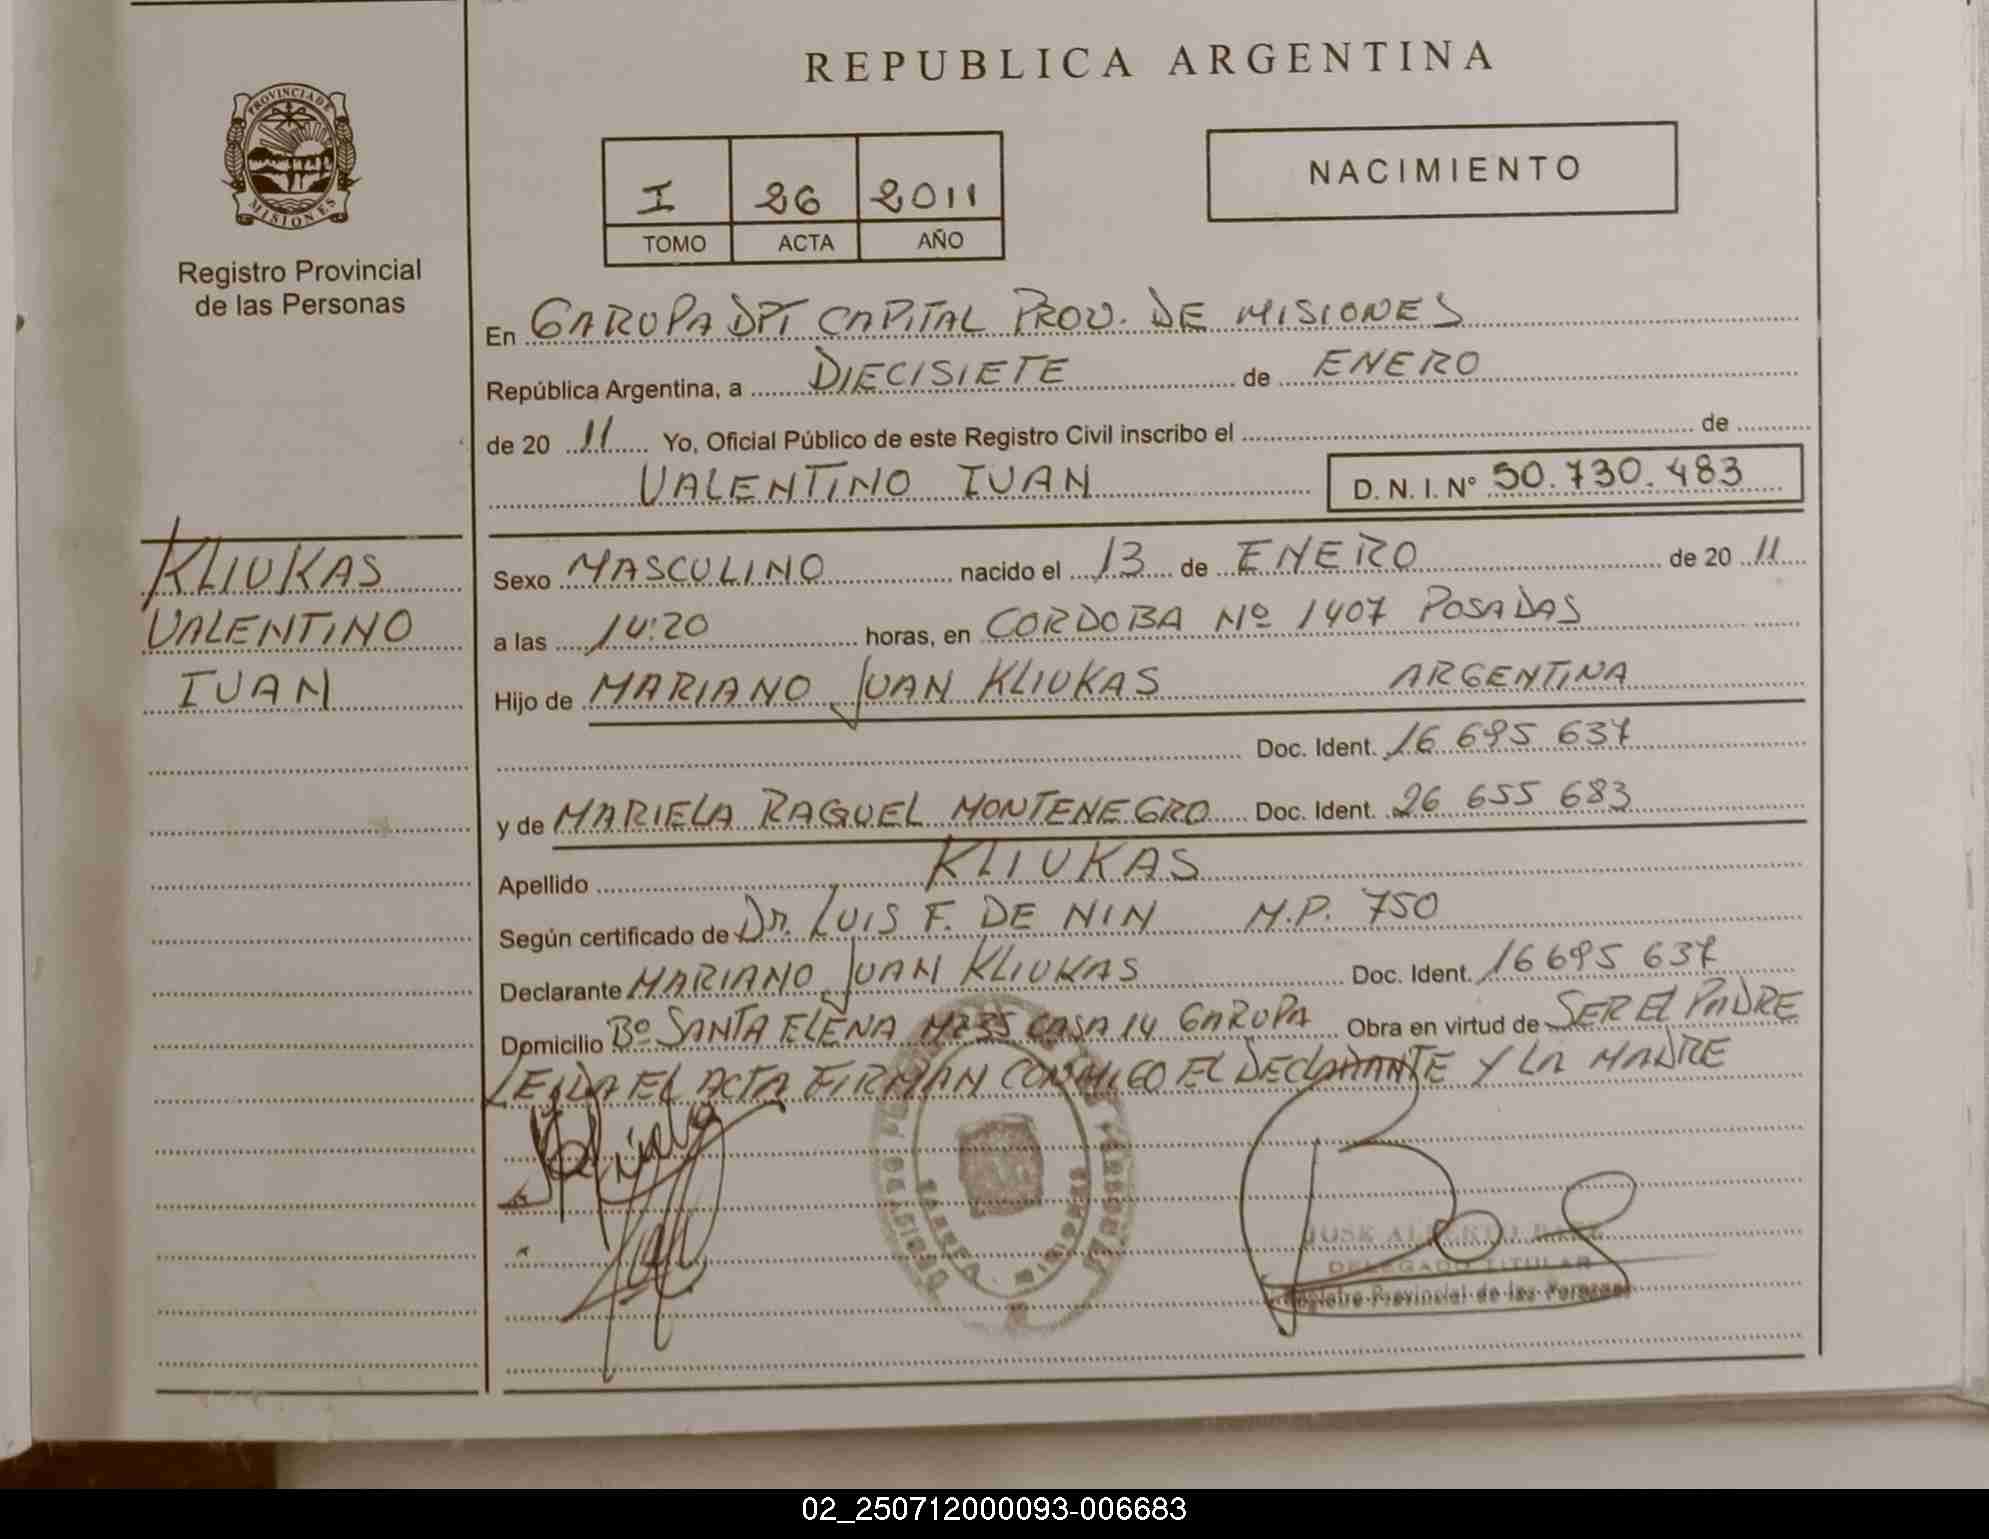 REPUBLICA ARGENTINA
PROVINCIA DE
MISIONES
Registro Provincial
de las Personas
I 26 2011
TOMO ACTA AÑO
NACIMIENTO
En GARUPA DPT CAPITAL PROV. DE MISIONES
República Argentina, a DIECISIETE de ENERO
de 20 11 Yo, Oficial Público de este Registro Civil inscribo el de
VALENTINO IVAN D. N. I. N° 50.730.483
KLIUKAS
VALENTINO
IVAN
Sexo MASCULINO nacido el 13 de ENERO de 20 11
a las 14:20 horas, en CORDOBA Nº 1407 POSADAS
Hijo de MARIANO JUAN KLIUKAS ARGENTINA
Doc. Ident. 16 695 637
y de MARIELA RAQUEL MONTENEGRO Doc. Ident. 26 655 683
Apellido KLIUKAS
Según certificado de Dr. LUIS F. DE NIN M.P. 750
Declarante MARIANO JUAN KLIUKAS Doc. Ident. 16 695 637
Domicilio Bº SANTA ELENA MZ 35 CASA 14 GARUPA Obra en virtud de SER EL PADRE
LEIDA EL ACTA FIRMAN CONMIGO EL DECLARANTE Y LA MADRE
JOSE ALBERTO
DELEGADO TITULAR
Registro Provincial de las Personas
02_250712000093-006683